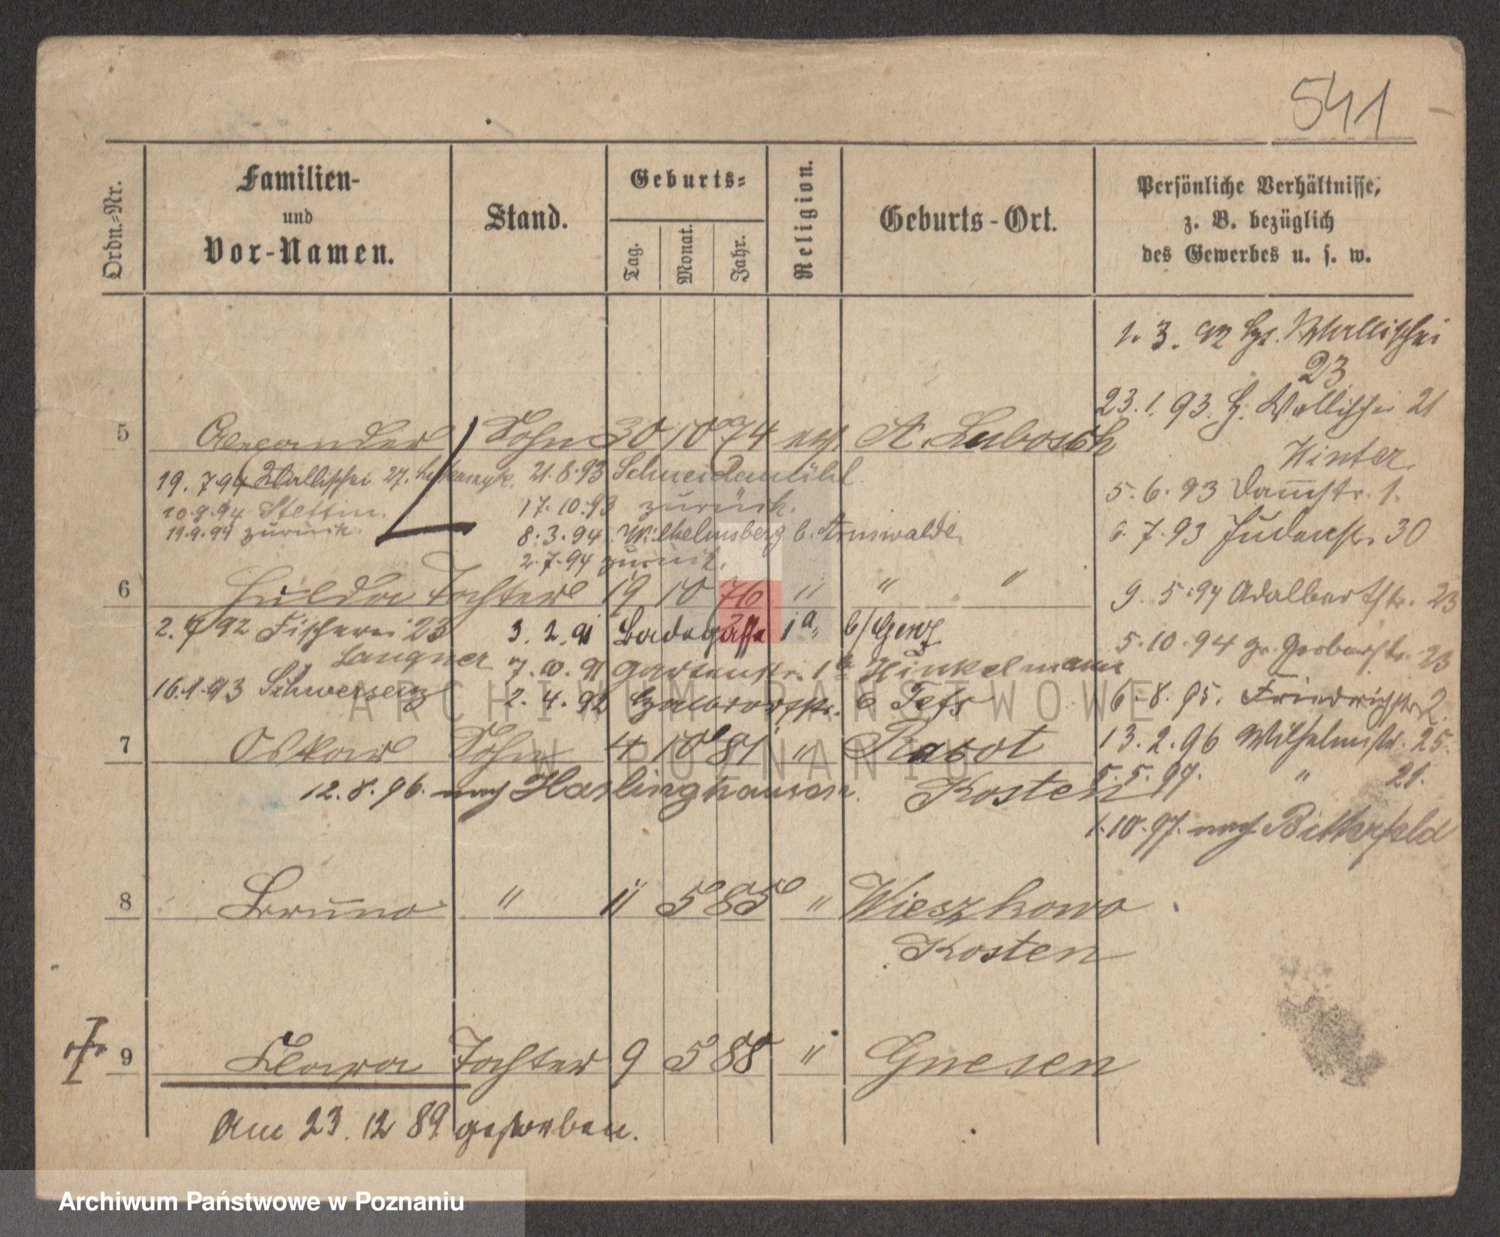 541
Ordn.-Nr.
Familien-
und
Vor-Namen.
Stand.
Geburts-
Tag.
Monat.
Jahr.
Religion.
Geburts-Ort.
Persönliche Verhältnisse,
z. B. bezüglich
des Gewerbes u. s. w.
1. 3. 92 Wallischei
23
23. 1. 93. Wallischei 21
5 Alexander Sohn 30 10 74 A. Lubosch
Hinter
19. 7 94 Wallischei 27. 21.8.93 Schneidemühl
5. 6. 93 Damstr. 1.
10.9.94 Stettin. 17.10.93 zurück.
19.9.94 zurück. 8.3.94. Wilhelmsberg b. Arnswalde
6. 7. 93 Judenstr. 30
2.7.94 zurück.
6 Hulda Tochter 19 10 76 " " "
9. 5. 94 Adalbertstr. 23
2. 92 Fischerei 23 3. 2. 91 Badegasse 1a b/
Langner 7. 10. 91 Gartenstr. 1a Hinkelmann
5. 10. 94 gr. Gerberstr. 23
16.1.93 Schwersenz 2. 4. 92
6. 8. 95. Friedrichstr. 2.
7 Oskar Sohn 4 10 81 " Racot
13. 2. 96 Wilhelmstr. 25.
12. 8. 96. nach Kosten
5. 5. 97. " 21.
1.10.97. nach Bitterfeld
8 Bruno " 11 5 85 " Wieszkowo
Kosten
9 Clara Tochter 9 5 88 " Gnesen
Am 23. 12 89 gestorben.
ARCHIWUM PAŃSTWOWE
W POZNANIU
Archiwum Państwowe w Poznaniu